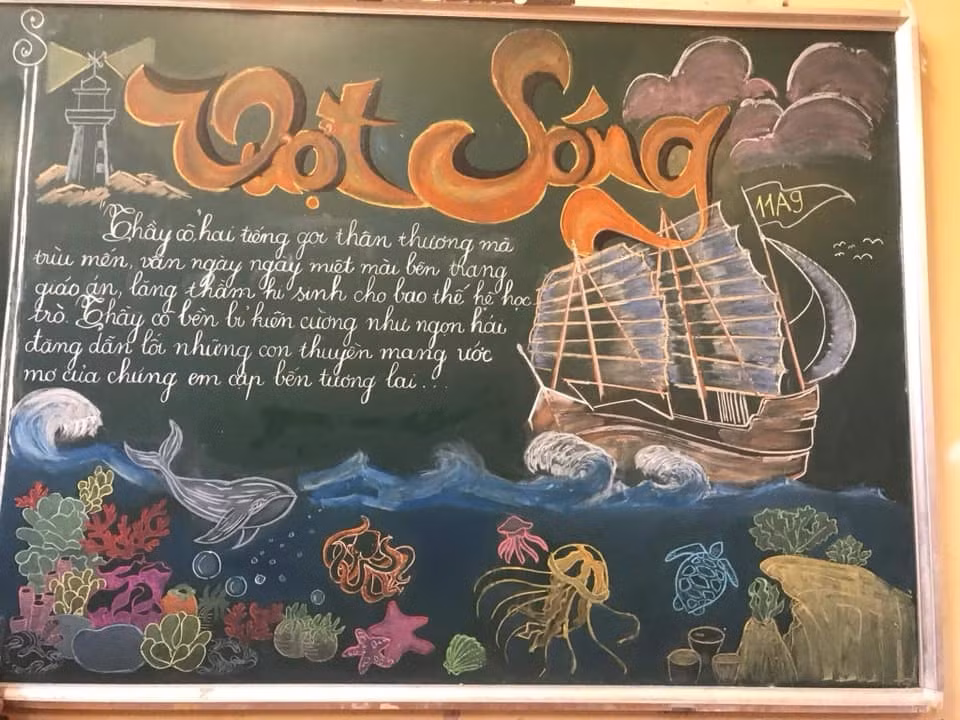 Vượt Sóng
11A9
"Thầy cô, hai tiếng gọi thân thương mà
trìu mến, vẫn ngày ngày miệt mài bên trang
giáo án, lặng thầm hi sinh cho bao thế hệ học
trò. Thầy cô bền bỉ kiên cường như ngọn hải
đăng dẫn lối những con thuyền mang ước
mơ của chúng em cập bến tương lai...